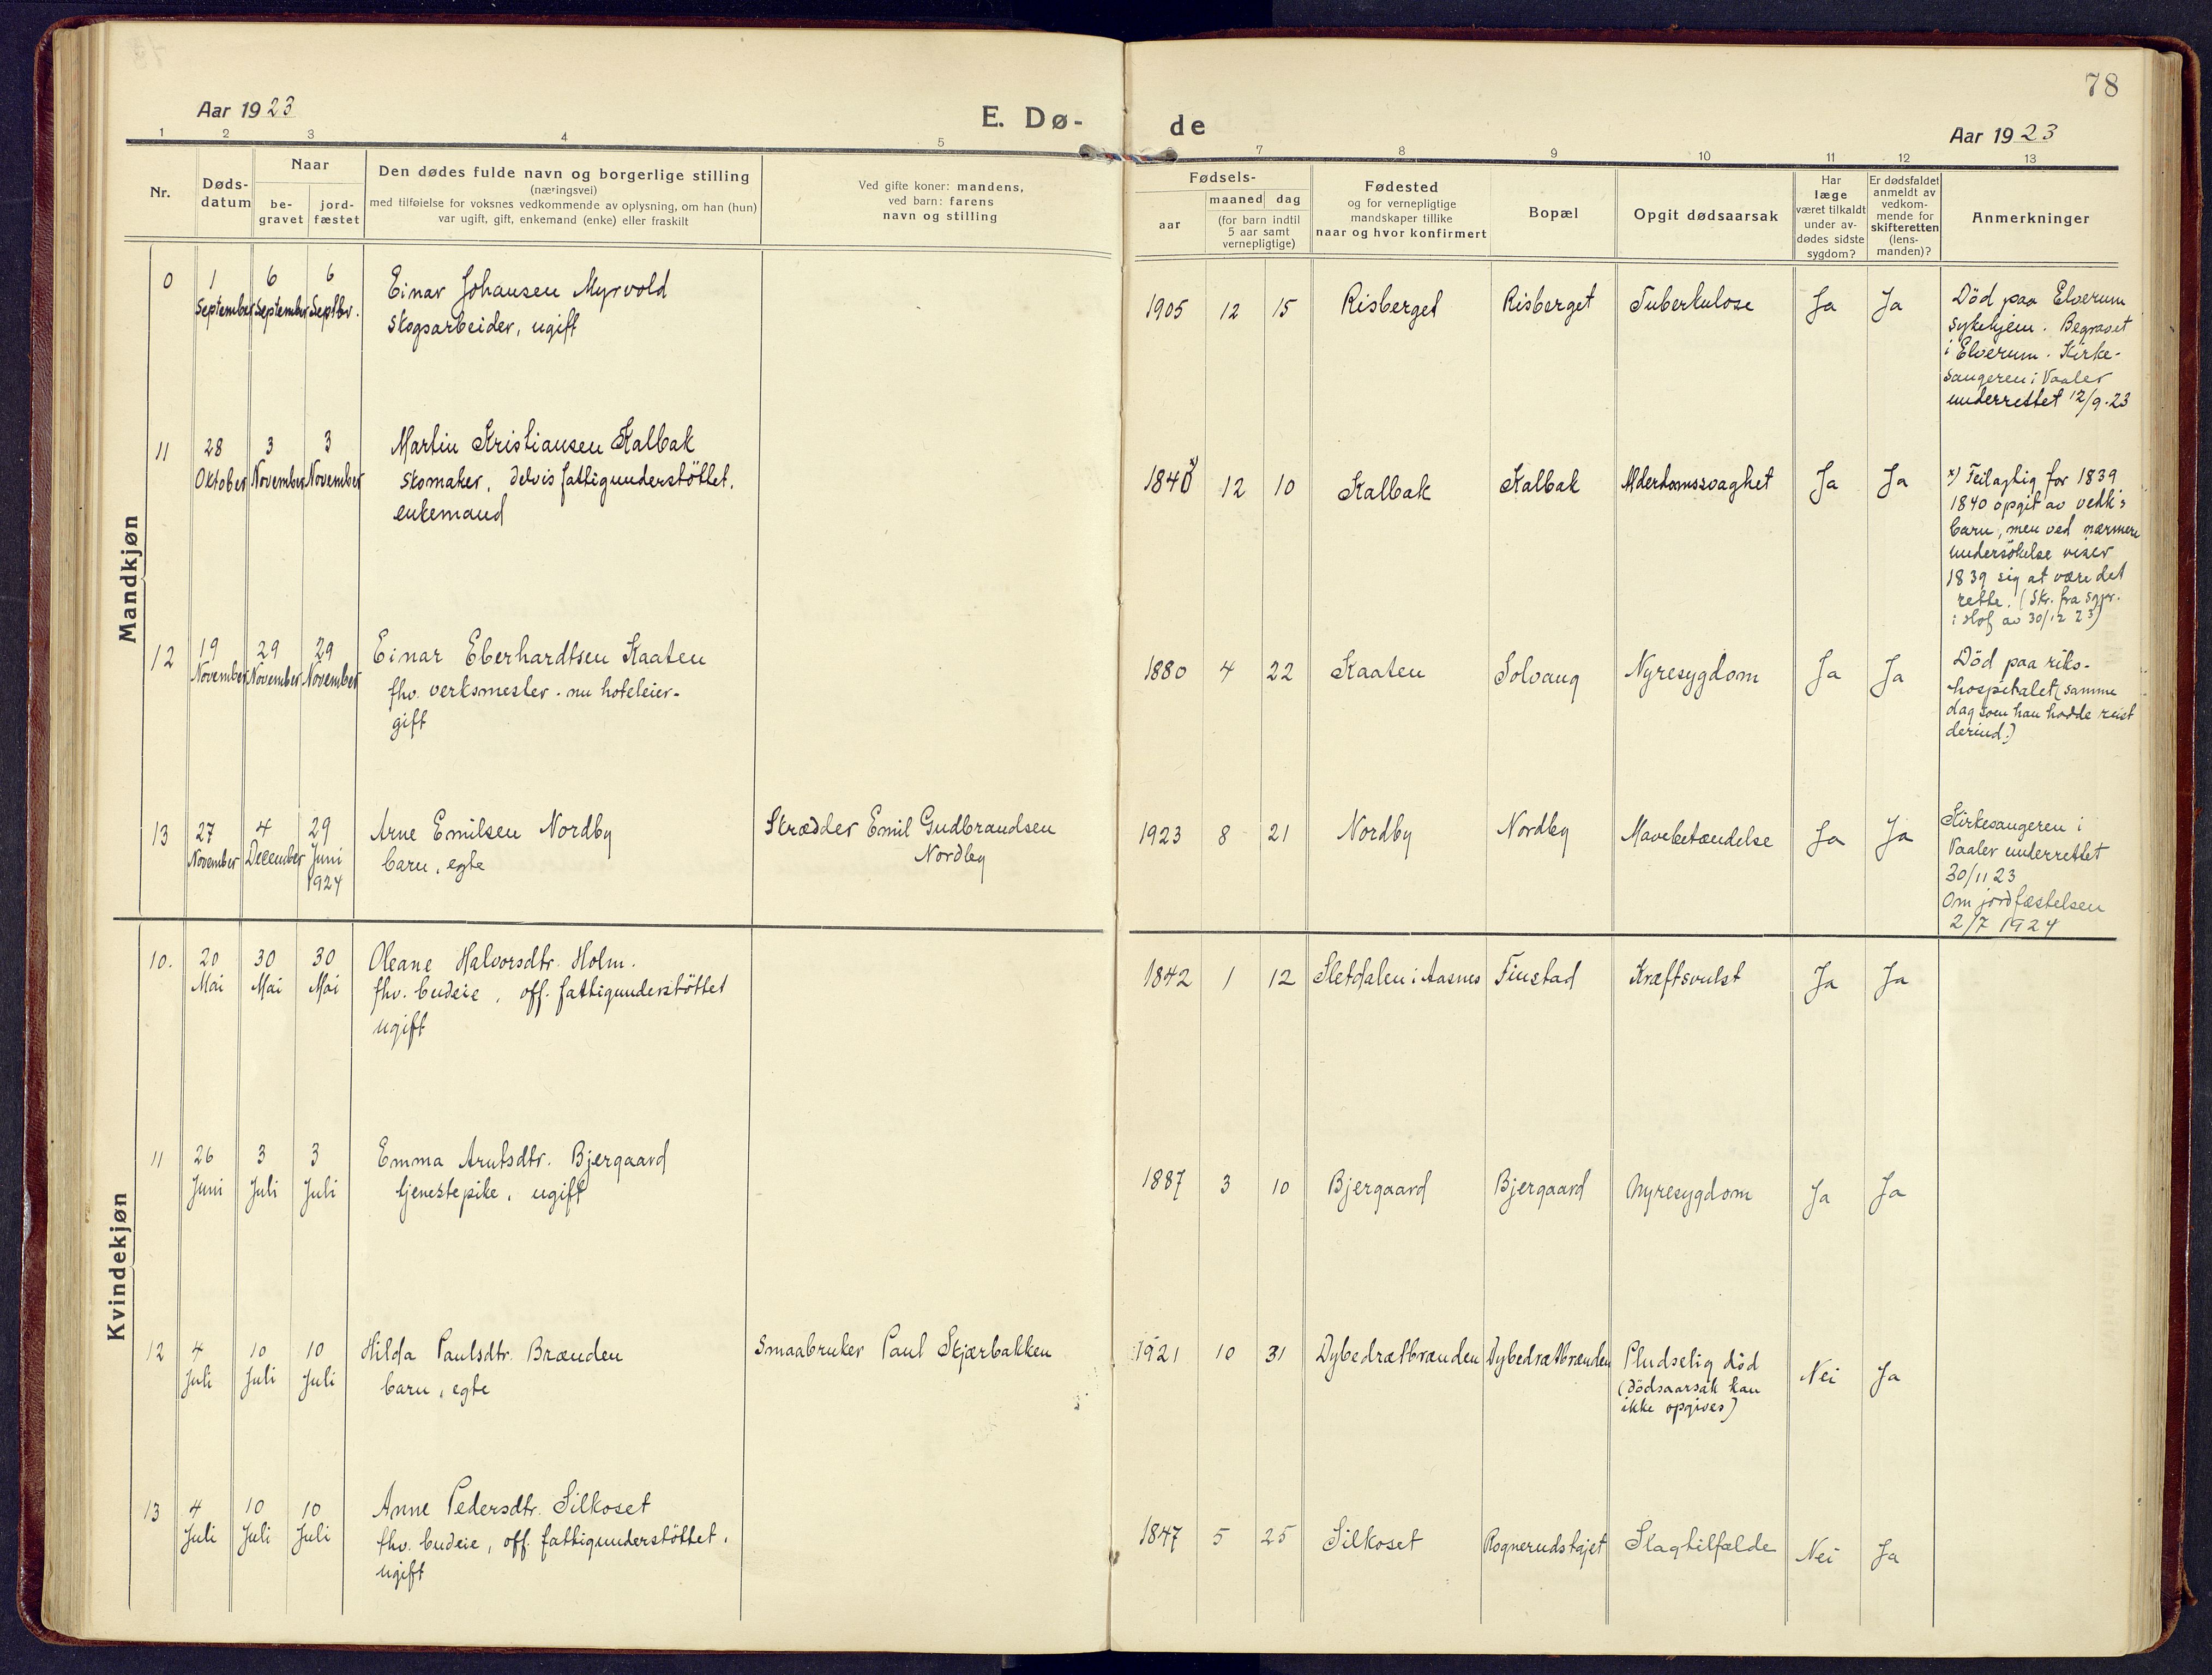 78
Aar 1923
E. Dø-
de
Aar 1923
1 2 3 4 5 6 7 8 9 10 11 12 13
Nr.
Døds-
datum
Naar
be-
gravet
jord-
fæstet
Den dødes fulde navn og borgerlige stilling
(næringsvei)
med tilføielse for voksnes vedkommende av oplysning, om han (hun)
var ugift, gift, enkemand (enke) eller fraskilt
Ved gifte koner: mandens,
ved barn: farens
navn og stilling
Fødsels-
aar
maaned dag
(for barn indtil
5 aar samt
vernepligtige)
Fødested
og for vernepligtige
mandskaper tillike
naar og hvor konfirmert
Bopæl
Opgit dødsaarsak
Har
læge
været tilkaldt
under av-
dødes sidste
sygdom?
Er dødsfaldet
anmeldt av
vedkom-
mende for
skifteretten
(lens-
manden)?
Anmerkninger
Mandkjøn
0
1
September
6
September
6
Septbr.
Einar Johansen Myrvold
skogsarbeider, ugift
1905 12 15
Risberget
Risberget
Tuberkulose
Ja
Ja
Død paa Elverum
sykehjem. Begravet
i Elverum. Kirke-
sangeren i Vaaler
underrettet 12/9.23
11
28
Oktober
3
November
3
November
Martin Kristiansen Kalbak
skomaker, delvis fattigunderstöttet,
enkemand
1840 x) 12 10
Kalbak
Kalbak
Alderdomssvaghet
Ja
Ja
x) Feilagtig for 1839
1840 opgit av vedk's
barn, men ved nærmere
undersökelse viser
1839 sig at være det
rette. (Skr. fra sgpr.
i Hof av 30/12 23)
12
19
November
29
November
29
November
Einar Eberhardtsen Kaaten
fhv. verksmester. nu hoteleier-
gift
1880 4 22
Kaaten
Solvang
Nyresygdom
Ja
Ja
Död paa riks-
hospitalet (samme
dag som han hadde reist
derind.)
13
27
November
4
December
29
Juni
1924
Arne Emilsen Nordby
barn, egte
Skrædder Emil Gudbrandsen
Nordby
1923 8 21
Nordby
Nordby
Mavebetændelse
Ja
Ja
Kirkesangeren i
Vaaler underrettet
30/11 23
Om jordfæstelsen
2/7 1924
Kvindekjøn
10.
20
Mai
30
Mai
30
Mai
Oleane Halvorsdtr. Holm.
fhv. budeie, off. fattigunderstöttet
ugift
1842 1 12
Sletdalen i Aasnes
Finstad
Kræftsvulst
Ja
Ja
11
26
Juni
3
Juli
3
Juli
Emma Arntsdtr. Bjergaard
tjenestepike, ugift
1887 3 10
Bjergaard
Bjergaard
Nyresygdom
Ja
Ja
12
4
Juli
10
Juli
10
Juli
Hilda Paulsdtr. Brænden
barn, egte
Smaabruker Paul Skjærbakken
1921 10 31
Dybedrætbrænden
Dybedrætbrænden
Pludselig död
(dödsaarsak kan
ikke opgives)
Nei
Ja
13
4
Juli
10
Juli
10
Juli
Anne Pedersdtr. Silkoset
fhv. budeie, off. fattigunderstöttet,
ugift
1847 5 25
Silkoset
Rognerudstøjet
Slagtilfælde
Nei
Ja